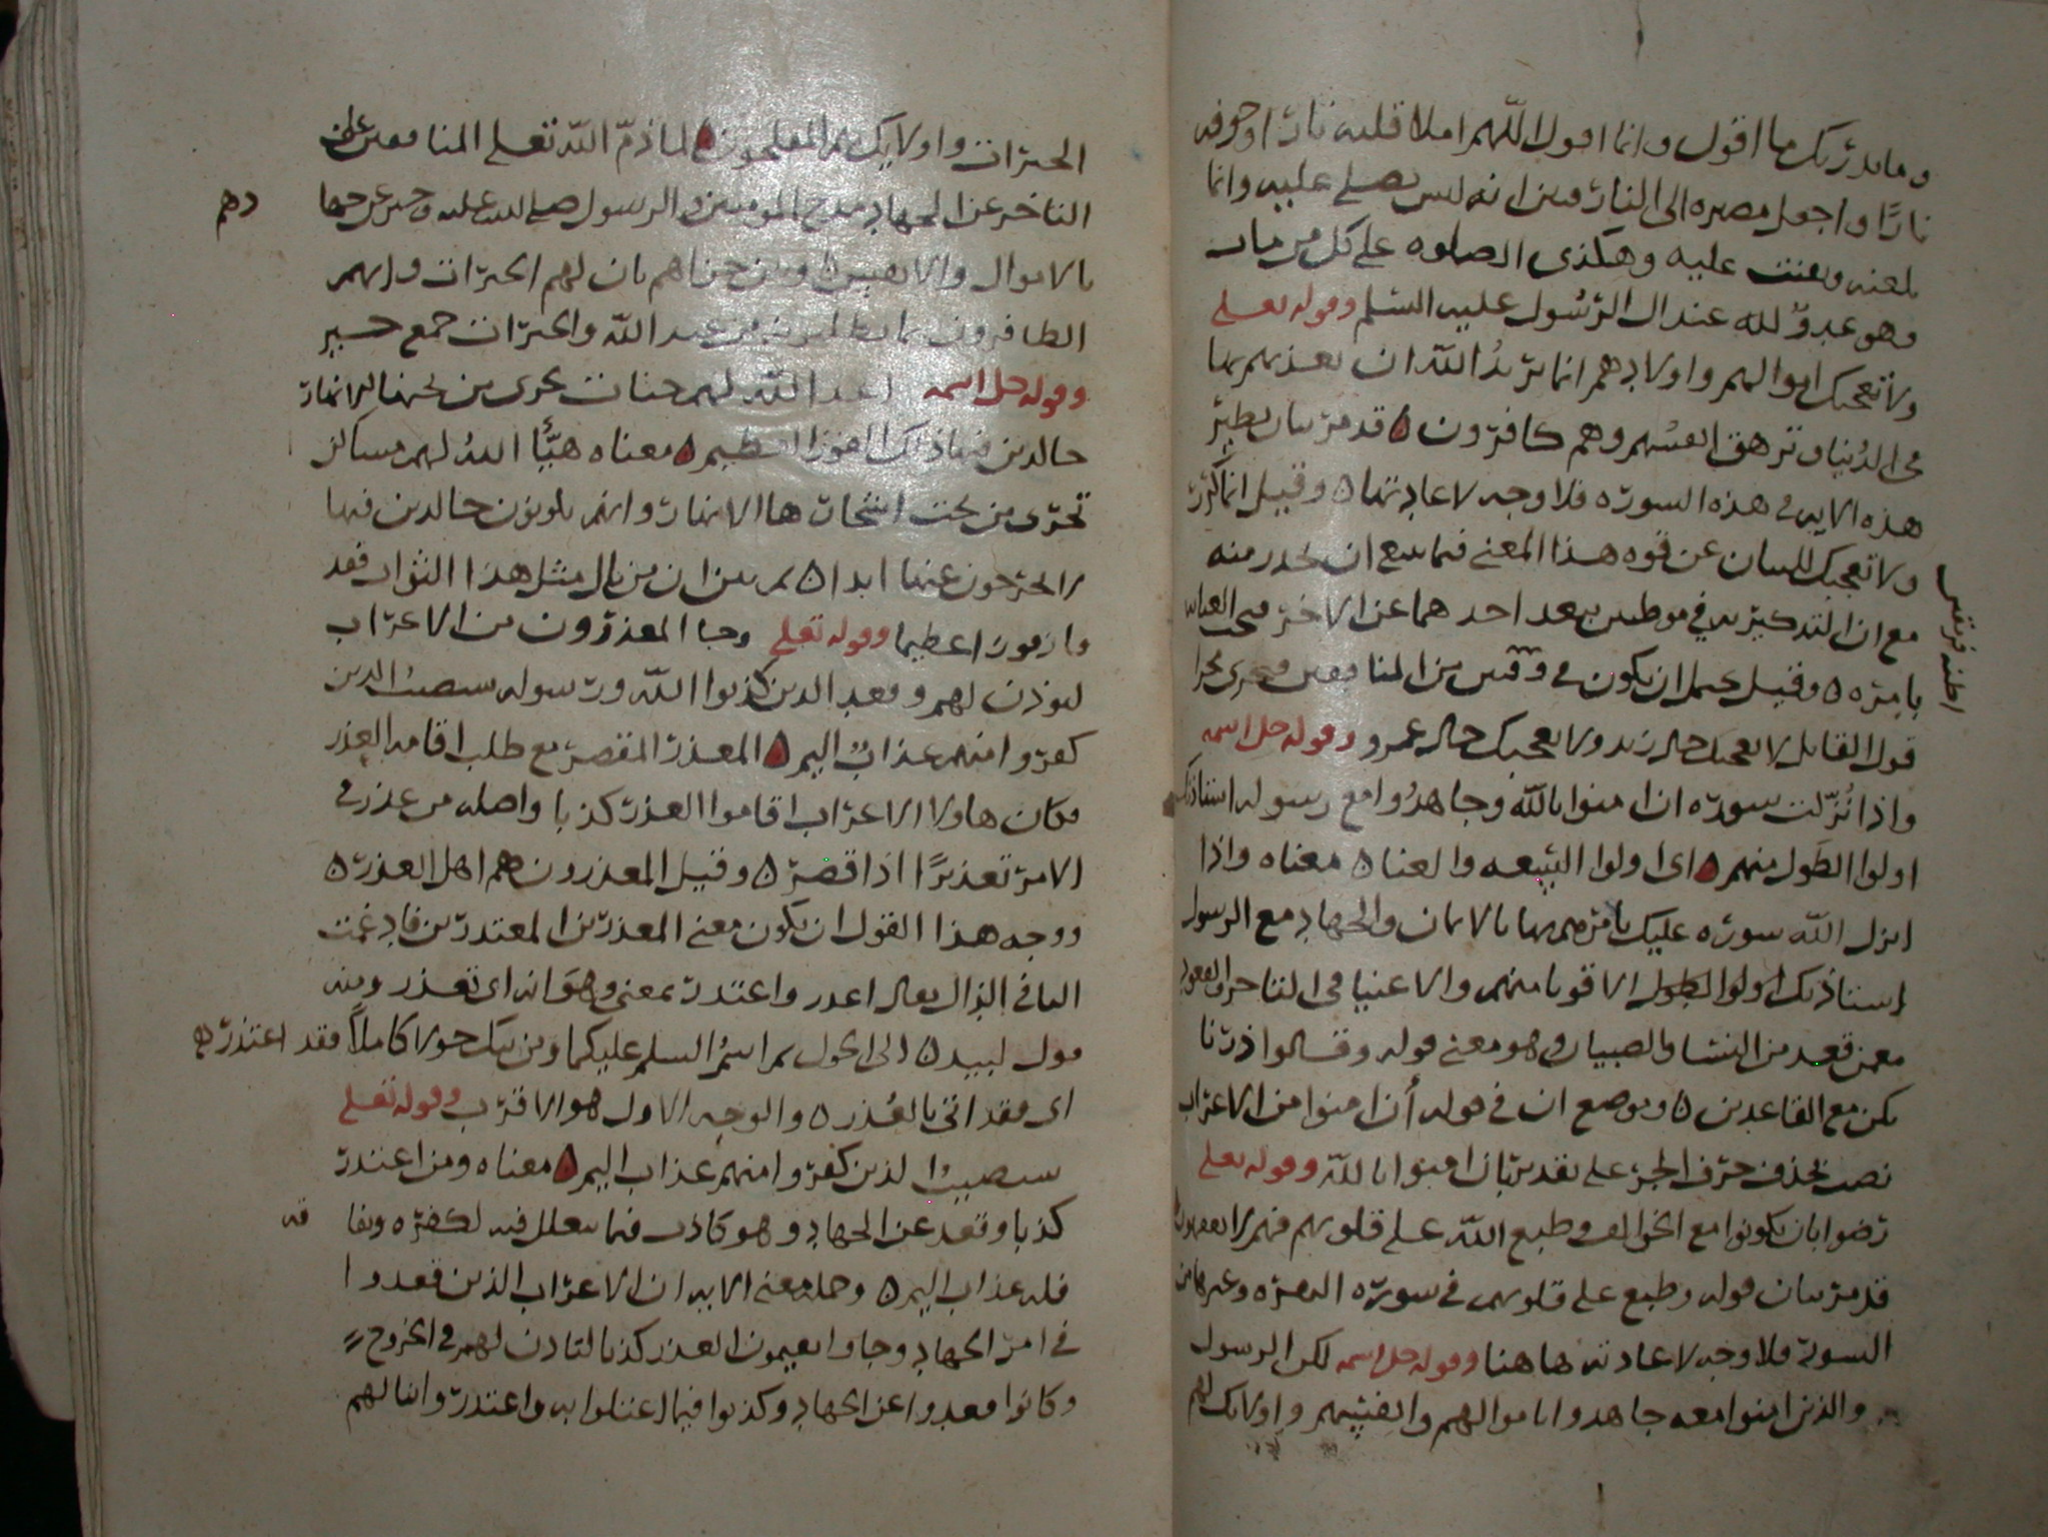 وما يدريك ما اقول وانما اقول اللهم املا قلبه نارا وجوفه
نارا واجعل مصيره الى النار فبين انه ليس يصلي عليه وانما
يلعنه ويقنت عليه وهكذى الصلوه على كل من مات
وهو عدو لله عند ال الرسول عليه السلم وقوله تعلى
ولا تعجبك اموالهم واولادهم انما يريد الله ان يعذبهم بها
في الدنيا وتزهق انفسهم وهم كافرون قد مر بيان نظير
هذه الايه في هذه السورة فلا وجه لاعادتها وقيل انما كرر
ولا تعجبك للبيان عن قوه هذا المعنى فيما ينبغ ان يحذر منه
مع ان التذكير به في موطنين بعد احدهما عن الاخر
وقيل يحتمل ان يكون في فريقين من المنافقين فجرى مجرا
اظنه فريقين
قول القايل لا يعجبك حال زيد ولا يعجبك حال عمرو وقوله جل اسمه
واذا نزلت سورة ان امنوا بالله وجاهدوا مع رسوله استاذنك
اولوا الطول منهم اى اولوا السعه والغنا معناه واذا
انزل الله سورة عليك يامرهم بها بالايمان والجهاد مع الرسول
استاذنك اولوا الطول الاقويا منهم والاغنيا في التاخر والقعود
معمن قعد من النسا والصبيان وهو معنى قوله وقالوا ذرنا
نكن مع القاعدين وموضع ان في قوله أن امنوا من الاعراب
نصب بحذف حرف الجر على تقدير بان امنوا بالله وقوله تعلى
رضوا بان يكونوا مع الخوالف وطبع الله على قلوبهم فهم لا يفقهون
قد مر بيان قوله وطبع على قلوبهم في سورة البقرة وغيرها من
السور فلا وجه لاعادته هاهنا وقوله جل اسمه لكن الرسول
والذين امنوا معه جاهدوا باموالهم وانفسهم واولايك لهم
الخيرات واولايك هم المفلحون لما ذم الله تعلى المنافقين على
التاخر عن الجهاد مدح المومنين والرسول صلى الله عليه
دهم
بالاموال والانفس وبين جزاهم بان لهم الخيرات وانهم
الظافرون بما يطلبونه من عند الله والخيرات جمع خير
وقوله جل اسمه اعد الله لهم جنات تجرى من تحتها الانهار
خالدين فيها ذلك الفوز العظيم معناه هيأ الله لهم مساكن
تجرى من تحت اشجارها الانهار وانهم يكونون خالدين فيها
لا يخرجون عنها ابدا ثم بين ان من نال مثل هذا الثواب فقد
فاز فوزا عظيما وقوله تعلى وجا المعذرون من الاعراب
ليوذن لهم وقعد الذين كذبوا الله ورسوله سيصيب الذين
كفروا منهم عذاب اليم المعذر المقصر مع طلب اقامه العذر
فكان هاولا الاعراب اقاموا العذر كذبا واصله من عذر في
الامر تعذيرًا اذا قصر وقيل المعذرون هم اهل العذر
ووجه هذا القول ان يكون معنى المعذرين المعتذرين فادغمت
التا في الذال يقال اعذر واعتذر بمعنى وهو انه اى تعذر ومنه
قول لبيد الى الحول ثم اسم السلم عليكما ومن يبك حولا كاملاً فقد اعتذر
اى فقد اتى بالعذر والوجه الاول هو الاقرب وقوله تعلى
سيصيب الذين كفروا منهم عذاب اليم معناه ومن اعتذر
كذبا وقعد عن الجهاد وهو كاذب فيما يتعلل فيه لكفره ونفا
قه
فله عذاب اليم وجمله معنى الايه ان الاعراب الذين قعدوا
في امر الجهاد وجاوا يقيمون العذر كذبا لتاذن لهم في الخروج
وكانوا قعدوا عن الجهاد وكذبوا فيما اعتلوا به واعتذر وانا لهم